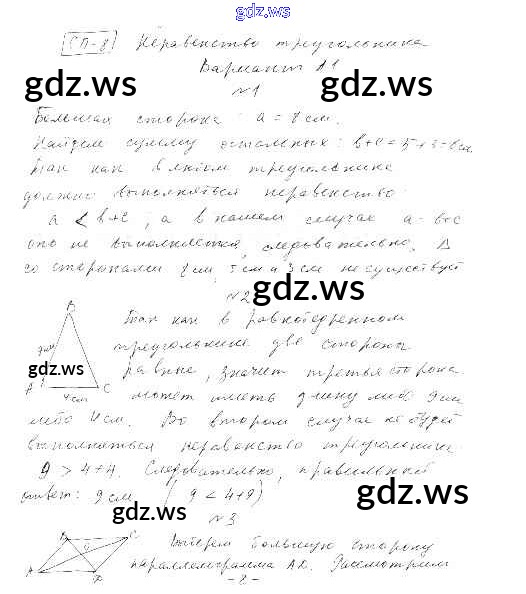 gdz.ws
СП-8 Неравенство треугольника
Вариант А1
gdz.ws gdz.ws
№1
Большая сторона: a = 8 см.
Найдем сумму остальных: b+c=5+3=8см
Так как в любом треугольнике
должно выполняться неравенство
a < b+c, а в нашем случае a = b+c
оно не выполняется, следовательно, Δ
со сторонами 8 см, 5 см и 3 см не существует
№2
gdz.ws
B
Так как в равнобедренном
треугольнике две стороны
9см
gdz.ws
равны, значит третья сторона
A C
4см
может иметь длину либо 9см
либо 4 см. Во втором случае не будет
выполняться неравенство треугольника
9 > 4+4. Следовательно, правильный
ответ: 9 см (9 < 4+9)
gdz.ws
gdz.ws
№3
B C
Выберем большую сторону
параллелограмма AD. Рассмотрим
A D
- 8 -